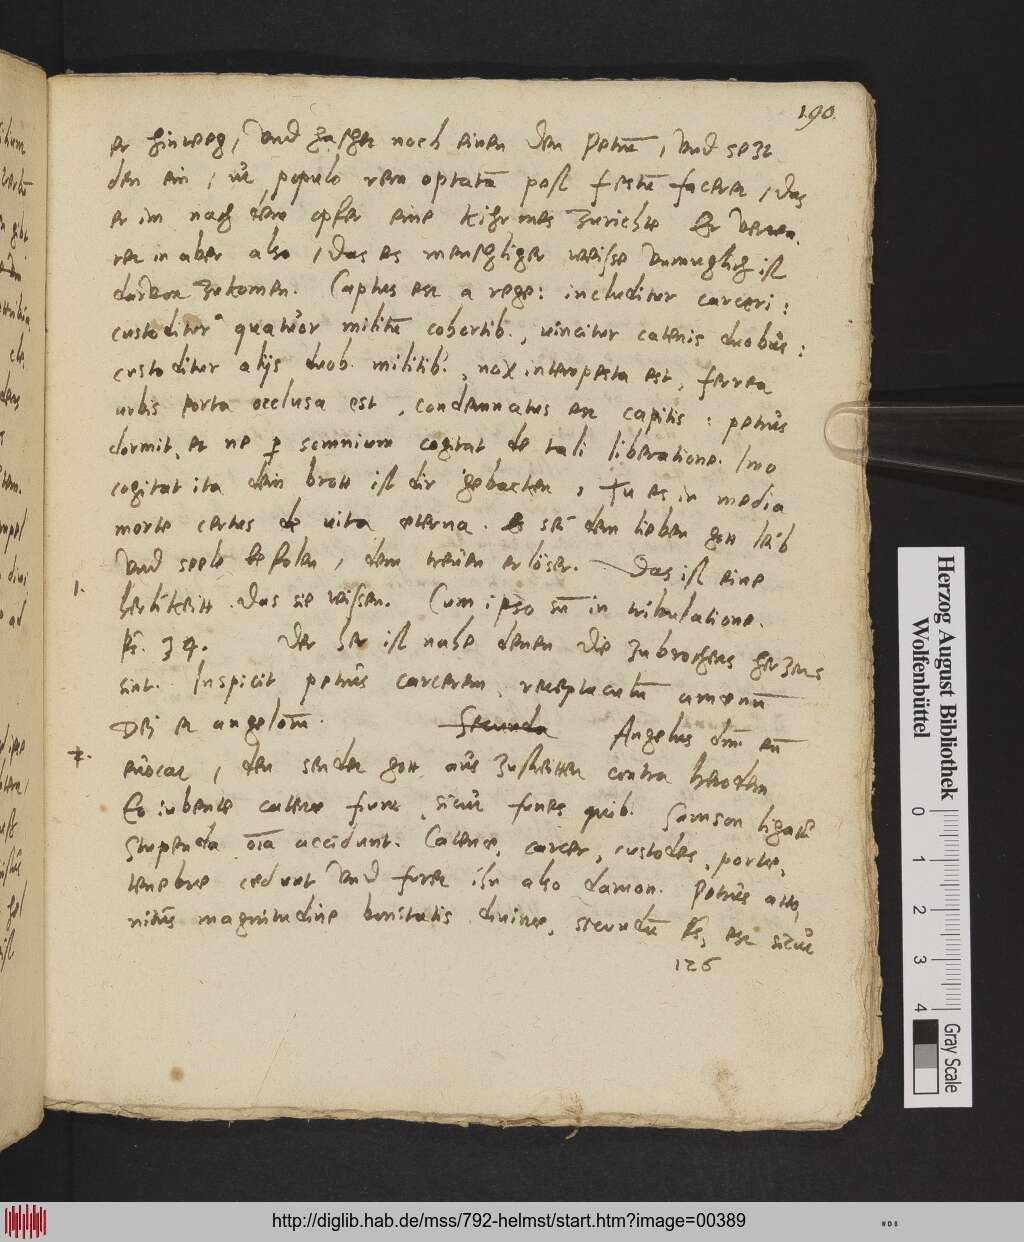 190.
er hinweg, vnd hascher noch einen den Petrū, vnd sezt
den ein, ut populo rem optatā post festū faceret, das
er im nach dem opfer eine kihrmes zurichte Er verwa.
ret in aber also, das es menschliger weisse vnmuglich ist
daruon zukomen. Captus est a rege: includitur carceri:
custoditur quatuor militū cohortib., uincitur catenis duobus:
custoditur alijs duob. militib., nox intempesta est, ferrea
urbis porta occlusa est, condemnatus est capitis: petrus
dormit, et ne p somnium cogitat de tali liberatione. Imo
cogitat ita dein brott ist dir gebacken, Tu es in media
morte certus de uita eterna. sei dem lieben gott leib
vnd seele befolen, dem treuen erlöser. Das ist eine
1.
herlikeitt das sie wissen. Cum ipso sū in tribulatione.
Ps. 34. Der her ist nahe denen die zubrochens herzens
sint. Inspicit petrus carcerem, receptaculū amœnū
Dei et angelorū. Secunda Angelus dm̄ eū
2.
euocat, den sendet gott aus zustreitten contra herodem
Eo iubente catenæ fiunt, sicut funes quib. Samson ligat
Stupenda oīa accidunt. Catenæ, carcer, custodes, portæ,
tenebræ cedunt vnd furet ihn also dauon. Petrus atto,
nitus magnitudine bonitatis diuinæ, secundū Ps, est sicut
126
Herzog August Bibliothek
Wolfenbüttel
0 1 2 3 4
Gray Scale
http://diglib.hab.de/mss/792-helmst/start.htm?image=00389